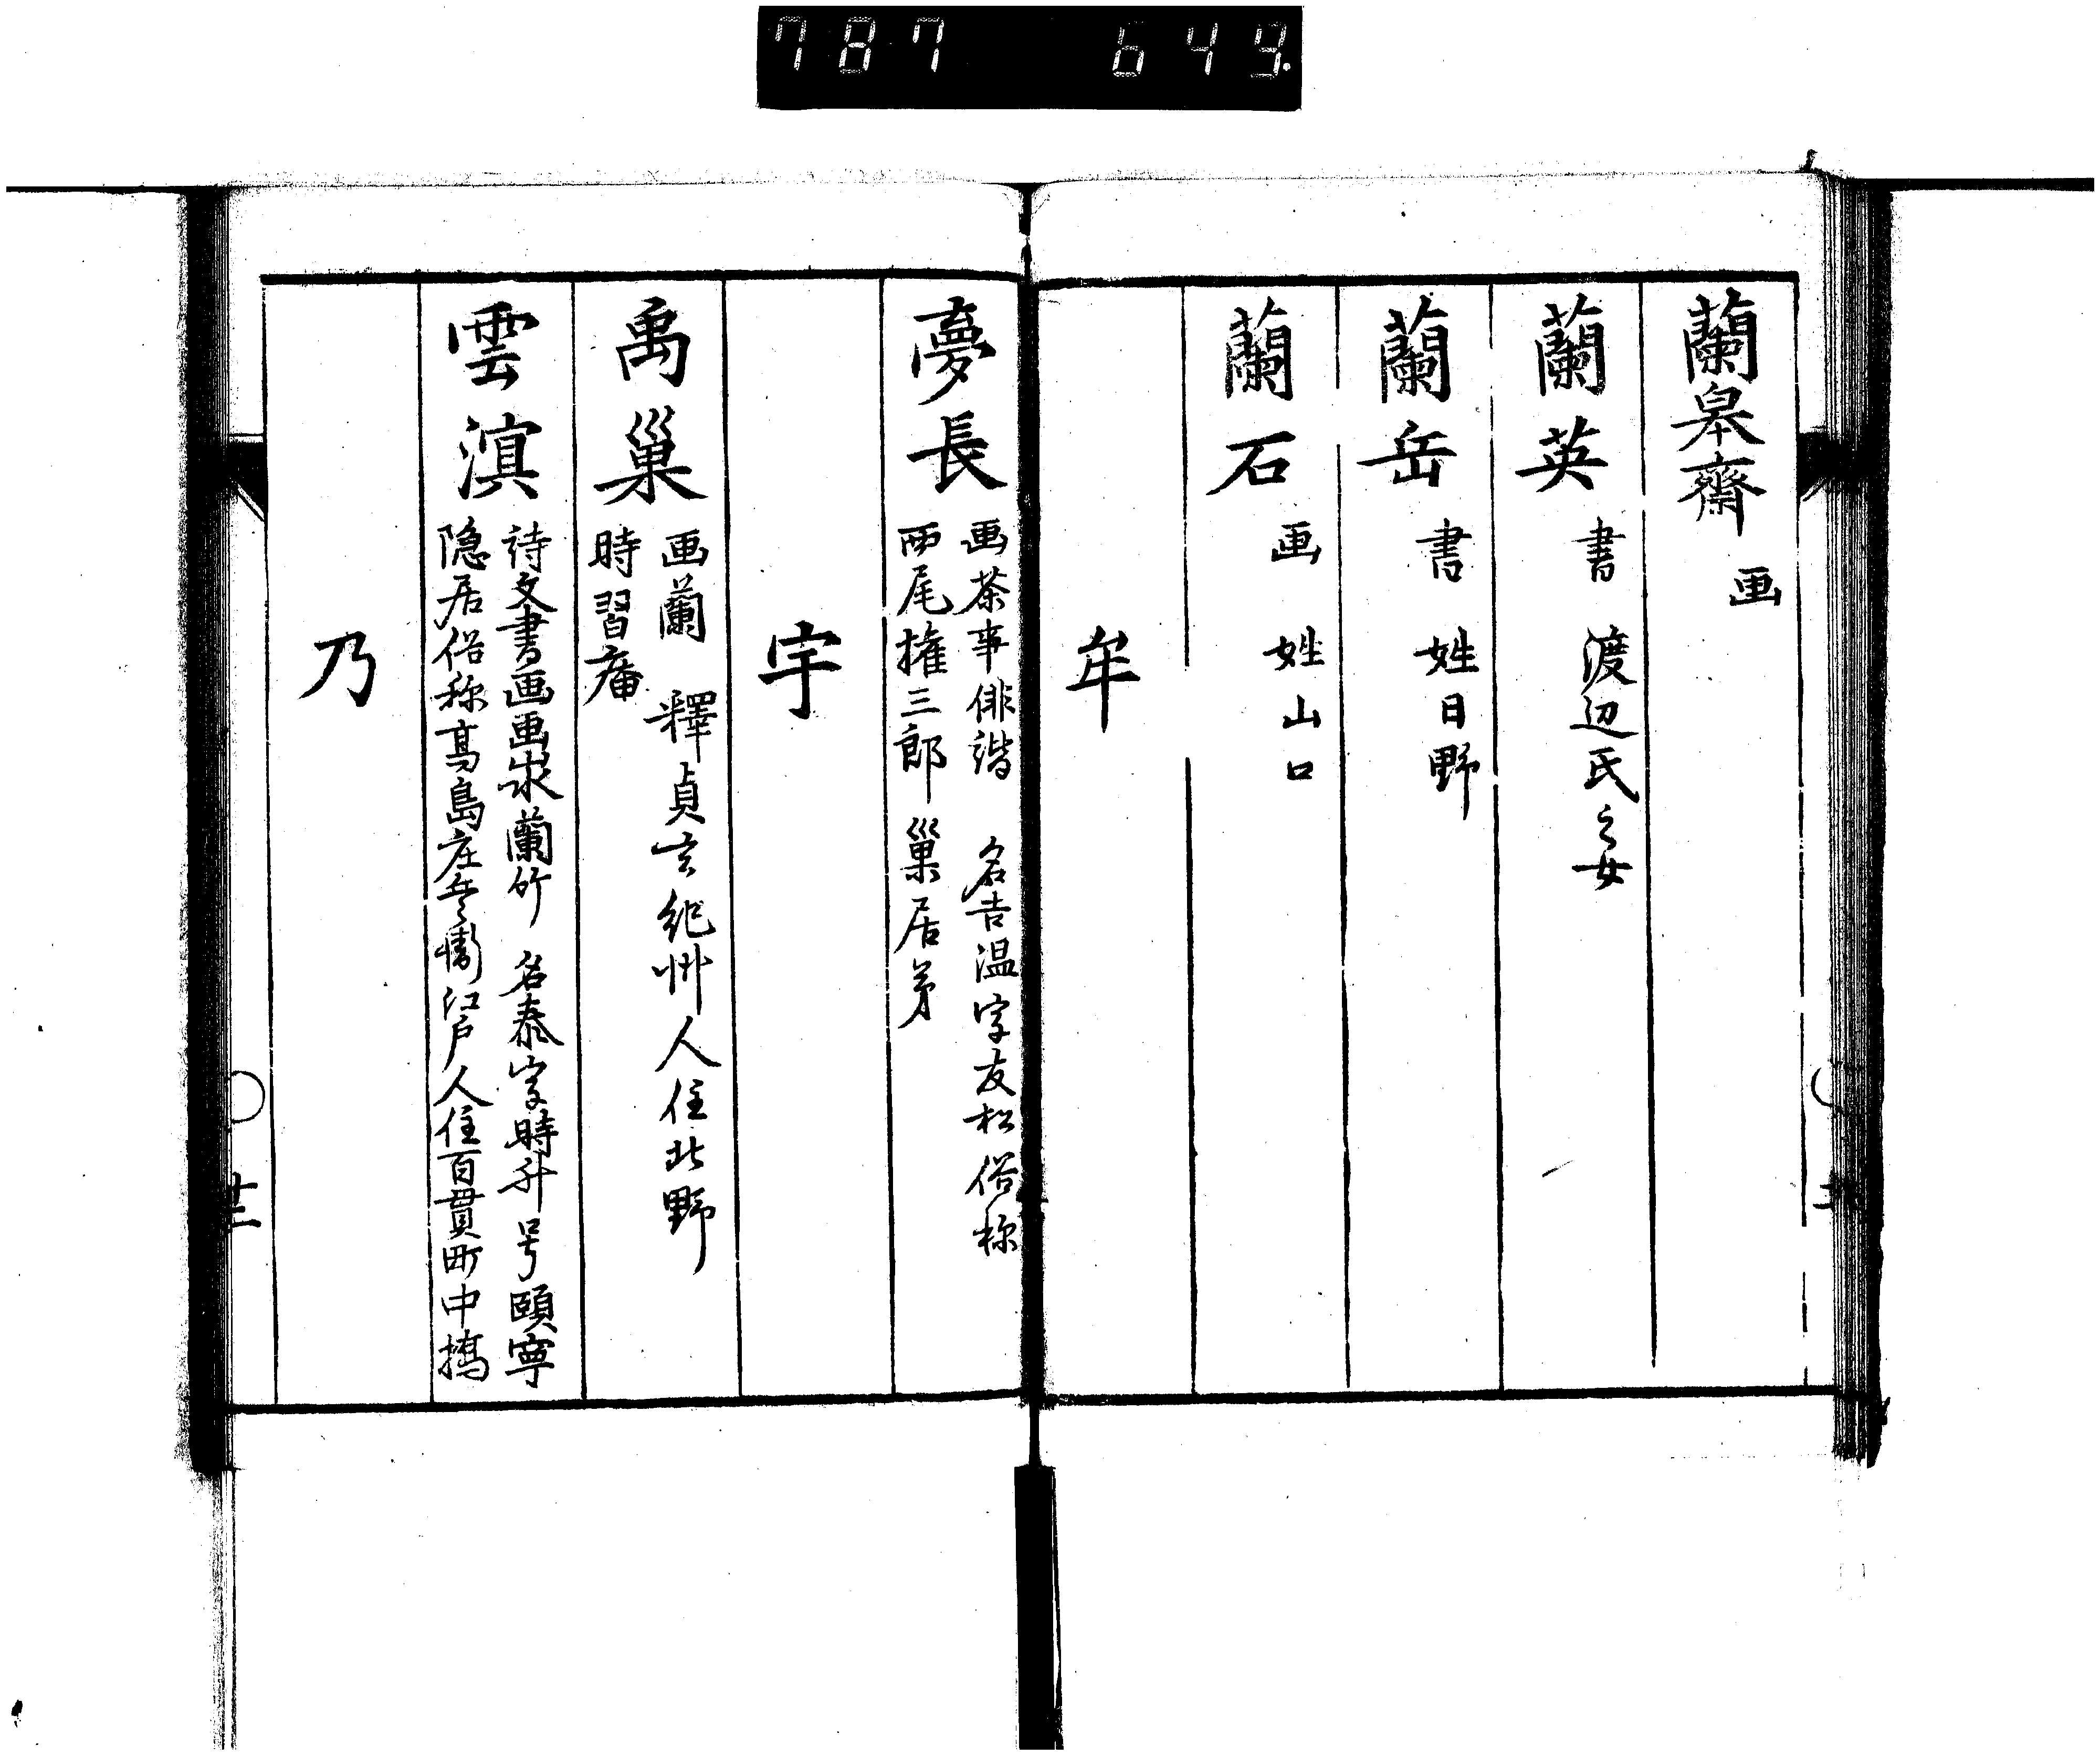 787 649.
蘭皋齋 画
蘭英 書 渡辺氏之女
蘭岳 書 姓日野
蘭石 画 姓山口
牟
夢長 画茶事俳諧 名吉温字友松俗称
西尾権三郎 巣居弟
宇
禹巣 画蘭 釋貞玄紀州人住北野
時習庵
雲濵 詩文書画画 蘭竹 名泰字時升号頤寧
隠居俗称髙島庄兵衛江戸人住百貫町中橋
乃